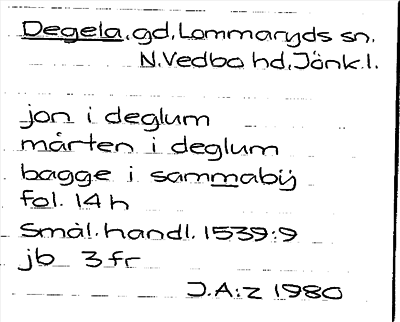 Degela, gd, Lommaryds sn.
N. Vedbo hd, Jönk. l.
jon i deglum
mårten i deglum
bagge i sammabÿ
fol. 14 h
Smål. handl. 1539:9
jb 3 fr
J.A:z 1980